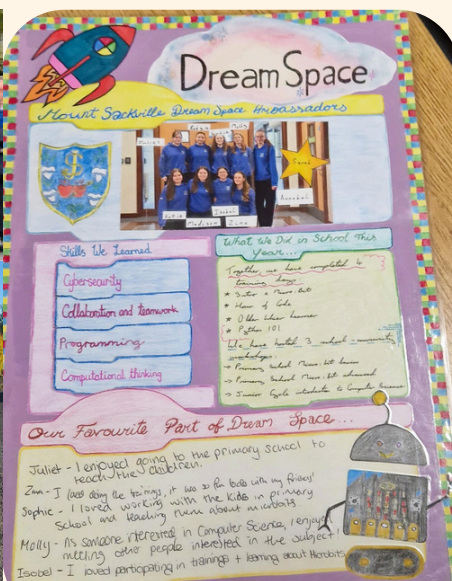 Dream Space
Mount Sackville Dream Space Ambassadors
Juliet
Molly
Sophie
Sarah
Katie
Madison
Isobel
Zuna
Annabel
Skills We Learned
Cybersecurity
Collaboration and teamwork
Programming
Computational thinking
What We Did in School This
Year...
Together, we have completed 4
training days:
* Intro a Micro:bit
* Hour of Code
* Python 101
We have hosted 3 school community
workshops:
-> Primary School Micro:bit
-> Primary School Micro:bit advanced
-> Junior Cycle introduction to Computer Science
Our Favourite Part of Dream Space...
Juliet - I enjoyed going to the primary school to
teach the children.
I loved doing the trainings, it was so fun with my friends!
Sophie - I loved working with the kids in primary
school and teaching them about microbits.
Molly - As someone interested in Computer Science, I enjoyed
meeting other people interested in the subject!
Isobel - I loved participating in trainings + learning about Microbits